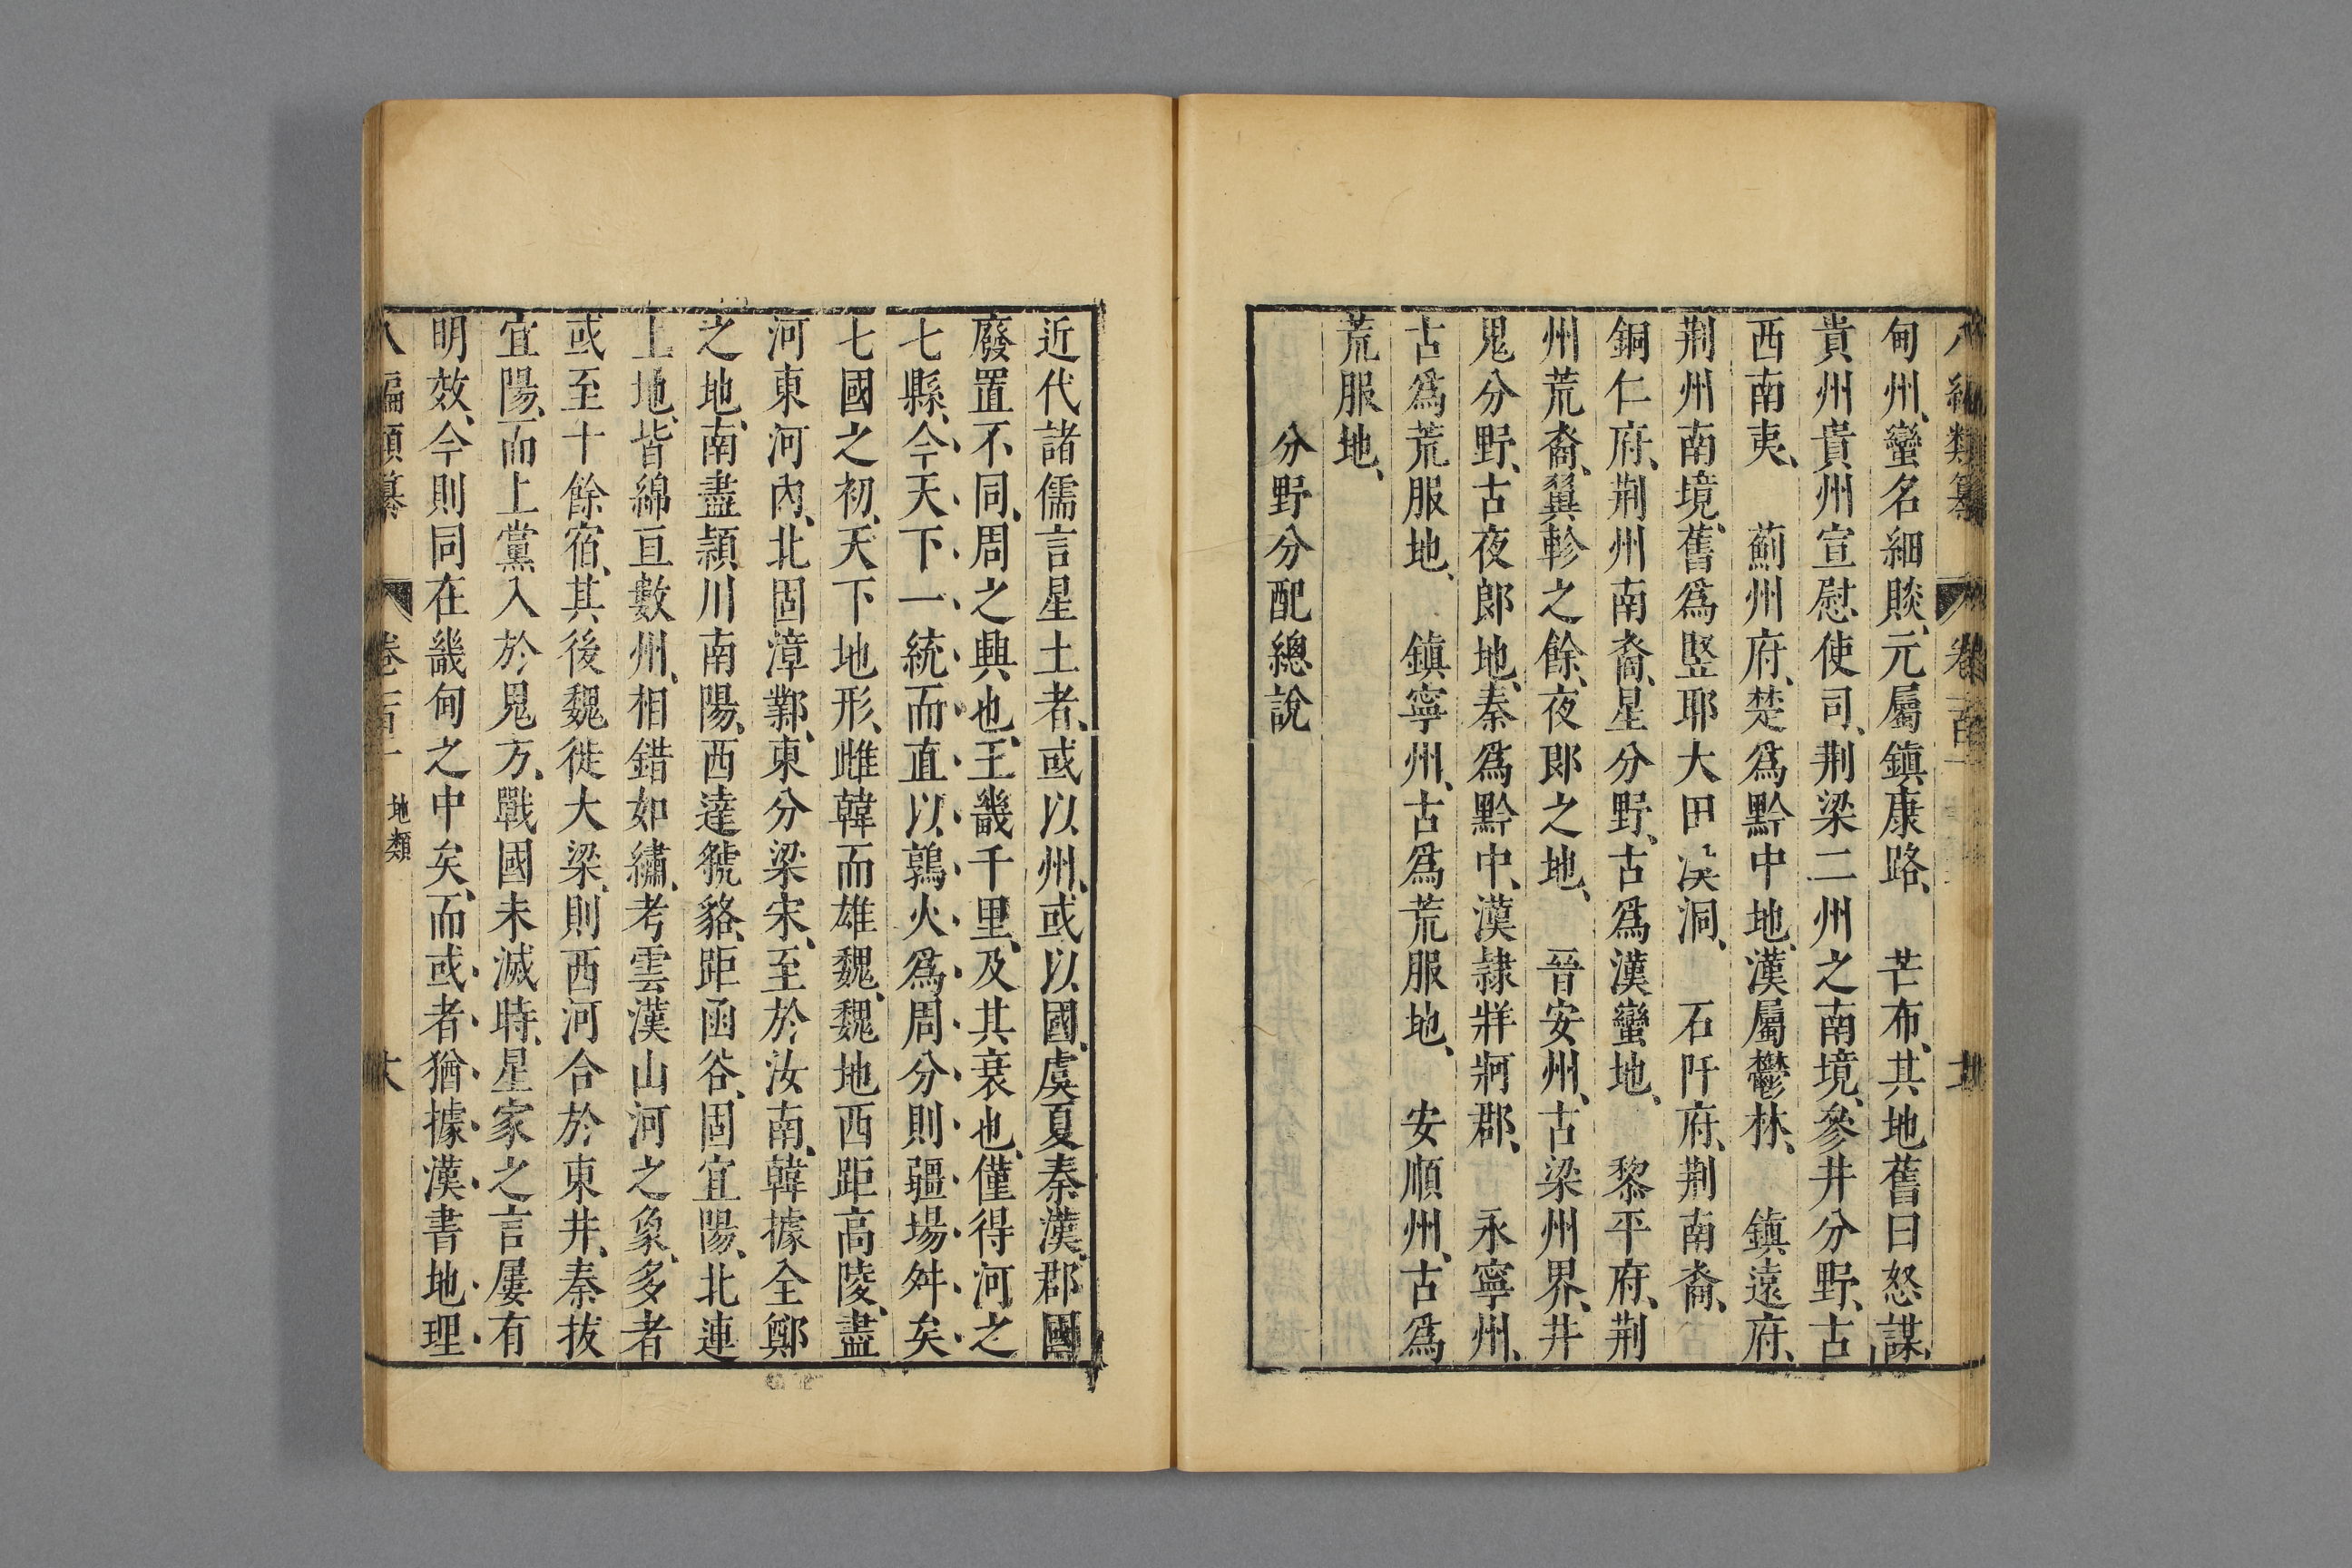 甸州、蠻名細賧、元屬鎮康路、　芒布、其地舊曰怒謀、
貴州貴州宣慰使司、荆梁二州之南境、參井分野、古
西南夷、　薊州府、楚為黔中地、漢屬鬱林、　鎮遠府、
荆州南境、舊為竪耶大田溪洞、　石阡府、荆南裔、
銅仁府、荆州南裔、星分野、古為漢蠻地、　黎平府、荆
州荒裔、翼軫之餘、夜郎之地、　晉安州、古梁州界、井
鬼分野、古夜郎地、秦為黔中、漢隸牂牁郡、　永寧州、
古為荒服地、　鎮寧州、古為荒服地、　安順州、古為
荒服地、
分野分配總說
近代諸儒言星土者、或以州、或以國、虞夏秦漢、郡國
廢置不同、周之興也、王畿千里、及其衰也、僅得河之
七縣、今天下一統、而直以鶉火為周分、則疆場舛矣
七國之初、天下地形、雌韓而雄魏、魏地西距高陵、盡
河東河內、北固漳鄴、東分梁宋、至於汝南、韓據全鄭
之地、南盡頴川南陽、西達虢貉、距函谷、固宜陽、北連
上地、皆綿亘數州、相錯如繡、考雲漢山河之象、多者
或至十餘宿、其後魏徙大梁、則西河合於東井、秦拔
宜陽、而上黨入於鬼方、戰國未滅時、星家之言屢有
明效、今則同在畿甸之中矣、而或者猶據漢書地理
八編類纂　卷一百十　地類